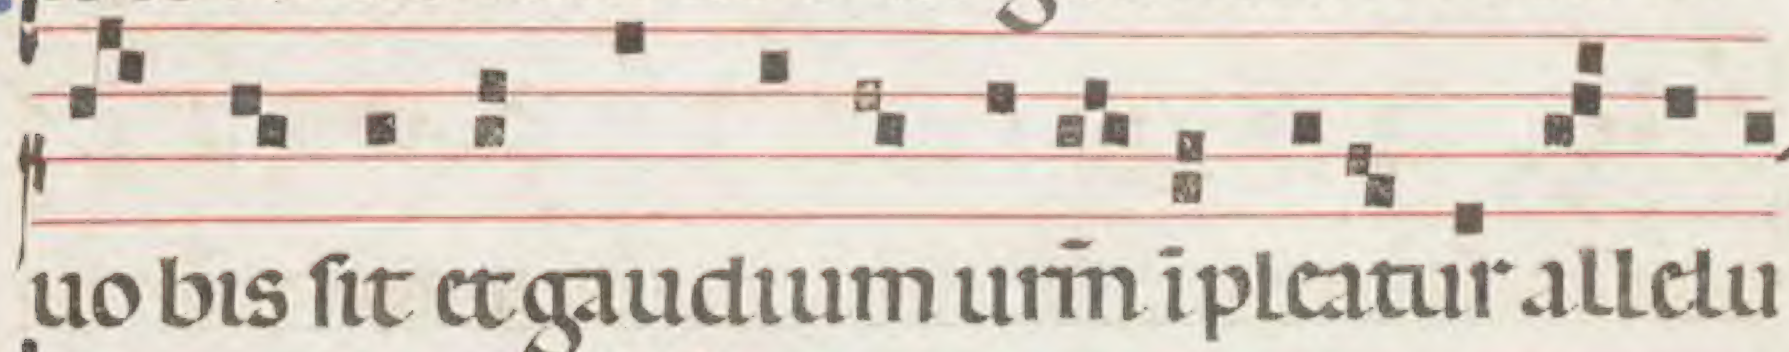 uo bis sit et gaudium urm̄ īpleatur allelu